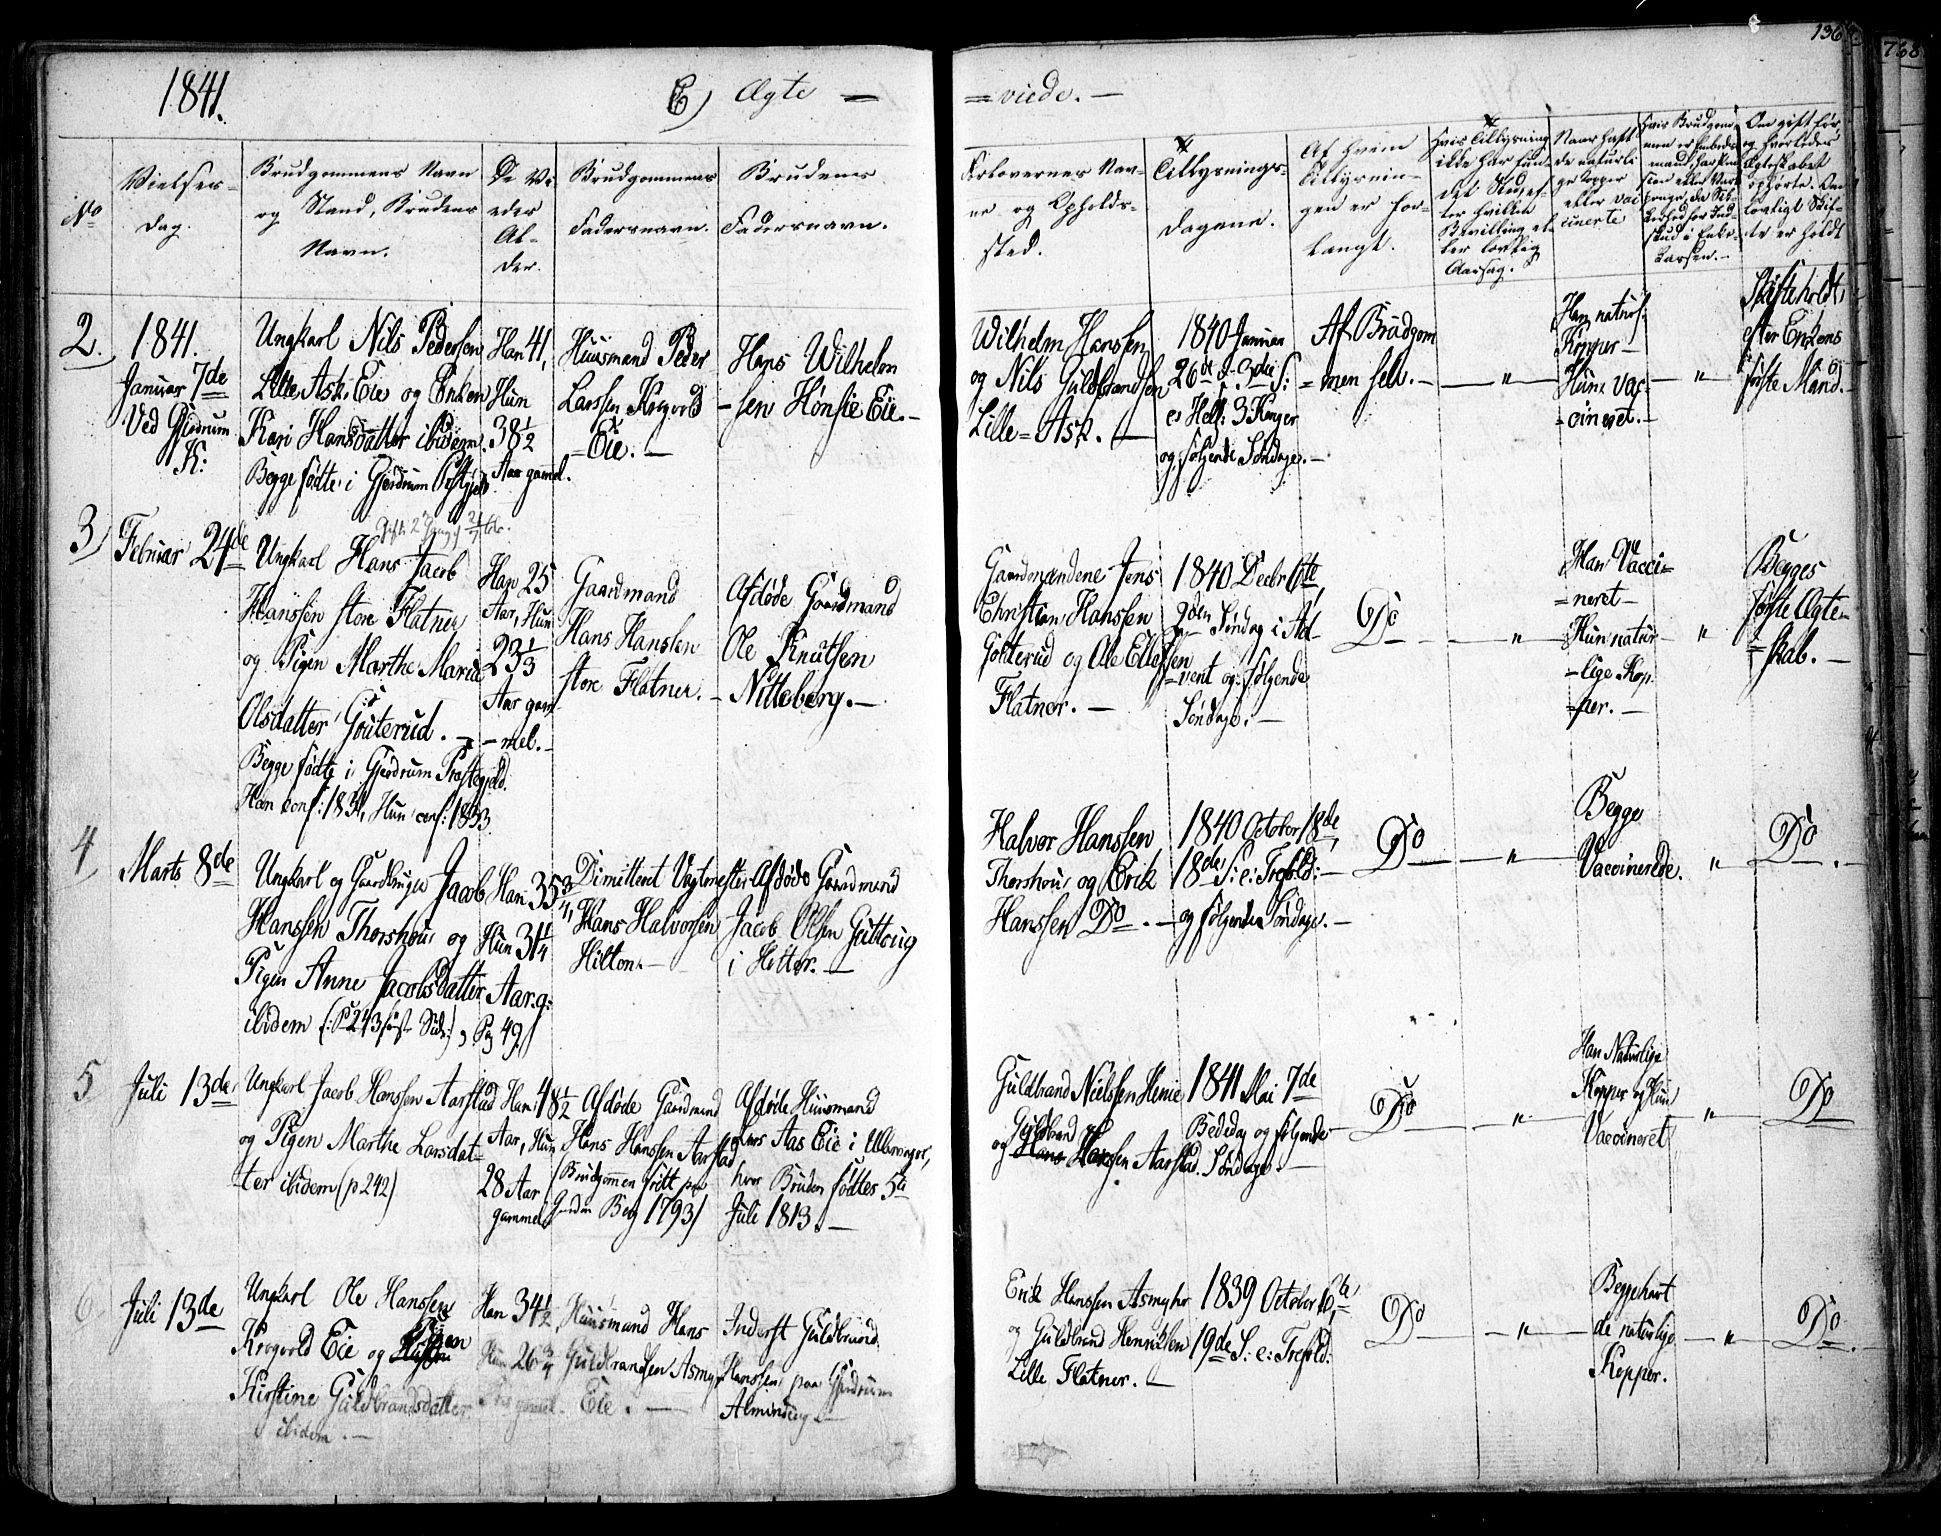 1841.
E) Ægte =
= viede. —
136
768
No
Vielses-
dag.
Brudgommens Navn
og Stand, Brudens
Navn.
De Vi-
edes
Al-
der.
Brudgommens
Fadersnavn.
Brudens
Fadersnavn.
Forlovernes Nav-
ne og Opholds-
sted.
Tillysnings-
dagene.
Af hvem
Tillysnin-
gen er for-
langt.
Hvis Tillysning
ikke har fun-
det Sted, ef-
ter hvilken
Bevilling el-
ler lovlig
Aarsag.
Naar haft
de naturli-
ge Kopper
eller vac-
cinerte
Om gift før,
og hvorledes
Ægteskabet
ophørte. Om
lovligt Skif-
te er holdt
2.
1841.
Januar 7de
Ved Gjedrum
K:
Ungkarl Nils Pedersen
Lille Ask. Eie og Enken
Kari Hansdatter ibidem.
Begge fødte i Gjerdrum Præstgjeld
Han 41,
Hun
38 1/2
Aar gamel.
Huusmand Peder
Larssen Krogvold
= Eie. —
Hans Wilhelm
= sen Hønsie Eie. —
Wilhelm Hanssen
og Nils Guldbrandsen
Lille = Ask. —
1840 Januar
26de d. 3die S:
e: Hell: 3 Konger
og følgende Søndage. —
Af Brudgom
= men selv. —
— " —
Han naturl:
Kopper —
Hun: vac-
= cineret. —
— " —
Skifte holdt,
efter Enkens
første Mand. —
3)
Februar 24de
Ungkarl Hans Jacob
Hanssen store Flatner
og Pigen Marthe Maria
Olsdatter Gouterud. —
Begge fødte i Gjerdrum Præstegjeld.
Han conf: 1831, Hun conf: 1833
Han 25
Aar, Hun
23 1/3
Aar gam-
= mel. —
Gaardmand
Hans Hanssen
store Flatner. —
Afdøde Gaardmand
Ole Knutsen
Nitteberg. —
Gaardmændene Jens
Christian Hanssen
Gouterud og Ole Ellefsen
Flatner. —
1840 Decbr 6te,
2den Søndag i Ad-
= vent og følgende
Søndage. —
Do
— " —
Han Vacci-
= neret —
Hun natur-
= lige Kop-
= per. —
"
Begges
første Ægte-
= skab. —
4)
Marts 8de
Ungkarl og Gaardbruger Jacob
Hanssen Thorshoug og
Pigen Anne Jacobsdatter
ibidem (: P 243 först Side:), Pag 49)
Han 35 3/4,
Hun 31 1/4
Aar g:
Dimittent Vagtmester
Hans Halvorsen
Hilton. —
Afdøde Gaardmand
Jacob Olsen Guttoug
i Hitter. —
Halvor Hanssen
Thorshoug og Erik
Hanssen Do. —
1840 October 18de,
18de S: e: Trefold: —
og følgende Søndage. —
Do
— " —
Begge
Vaccinerede.
"
Do. —
5
Juli 13de
Ungkarl Jacob Hanssen Aarstad
og Pigen Marthe Larsdat-
ter ibidem (p 242)
Han 48 1/2
Aar, Hun
28 Aar
gammel
Afdøde Gaardmand
Hans Hanssen Aarstad
(Brudgommen født paa
Berg 1793)
Afdøde Huusmand
Lars Aas Eie i Ullensager,
hvor Bruden fødtes 5te
Juli 1813. —
Guldbrand Nielssen Hemie
og Guldbrand
Hanssen Aarstad.
1841 Mai 7de
Bededag og følgende
Søndage. —
Do
— " —
Han Naturlige
Kopper og Hun
Vaccineret
"
Do
6
Juli 13de
Ungkarl Ole Hanssen
Krogvold Eie og Pigen
Kirstine Guldbrandsdatter
ibidem. —
Han 34 1/2
Hun 26 3/4
Aar gamel.
Huusmand Hans
Guldbrandsen Asmyr
Eie. —
Inderst Guldbrand
Hanssen paa Gjerdrum
Alminding. —
Erik Hanssen Asmyhr
og Guldbrand Henriksen
Lille Flatner. —
1839 October 6te,
19de S: e: Trefold:
Do
— " —
Begge havt
de naturlige
Kopper.
"
Do. —